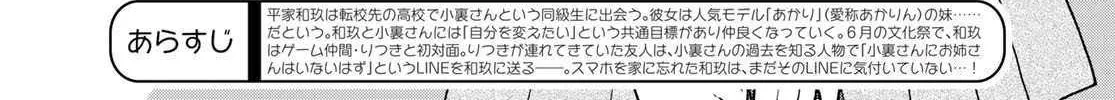 あらすじ
平家和玖は転校先の高校で小裏さんという同級生に出会う。彼女は人気モデル「あかり」(愛称あかりん)の妹……
だという。和玖と小裏さんには「自分を変えたい」という共通目標があり仲良くなっていく。6月の文化祭で、和玖
はゲーム仲間・りつきと初対面。りつきが連れてきていた友人は、小裏さんの過去を知る人物で「小裏さんにお姉さ
んはいないはず」というLINEを和玖に送る――。スマホを家に忘れた和玖は、まだそのLINEに気付いていない…！